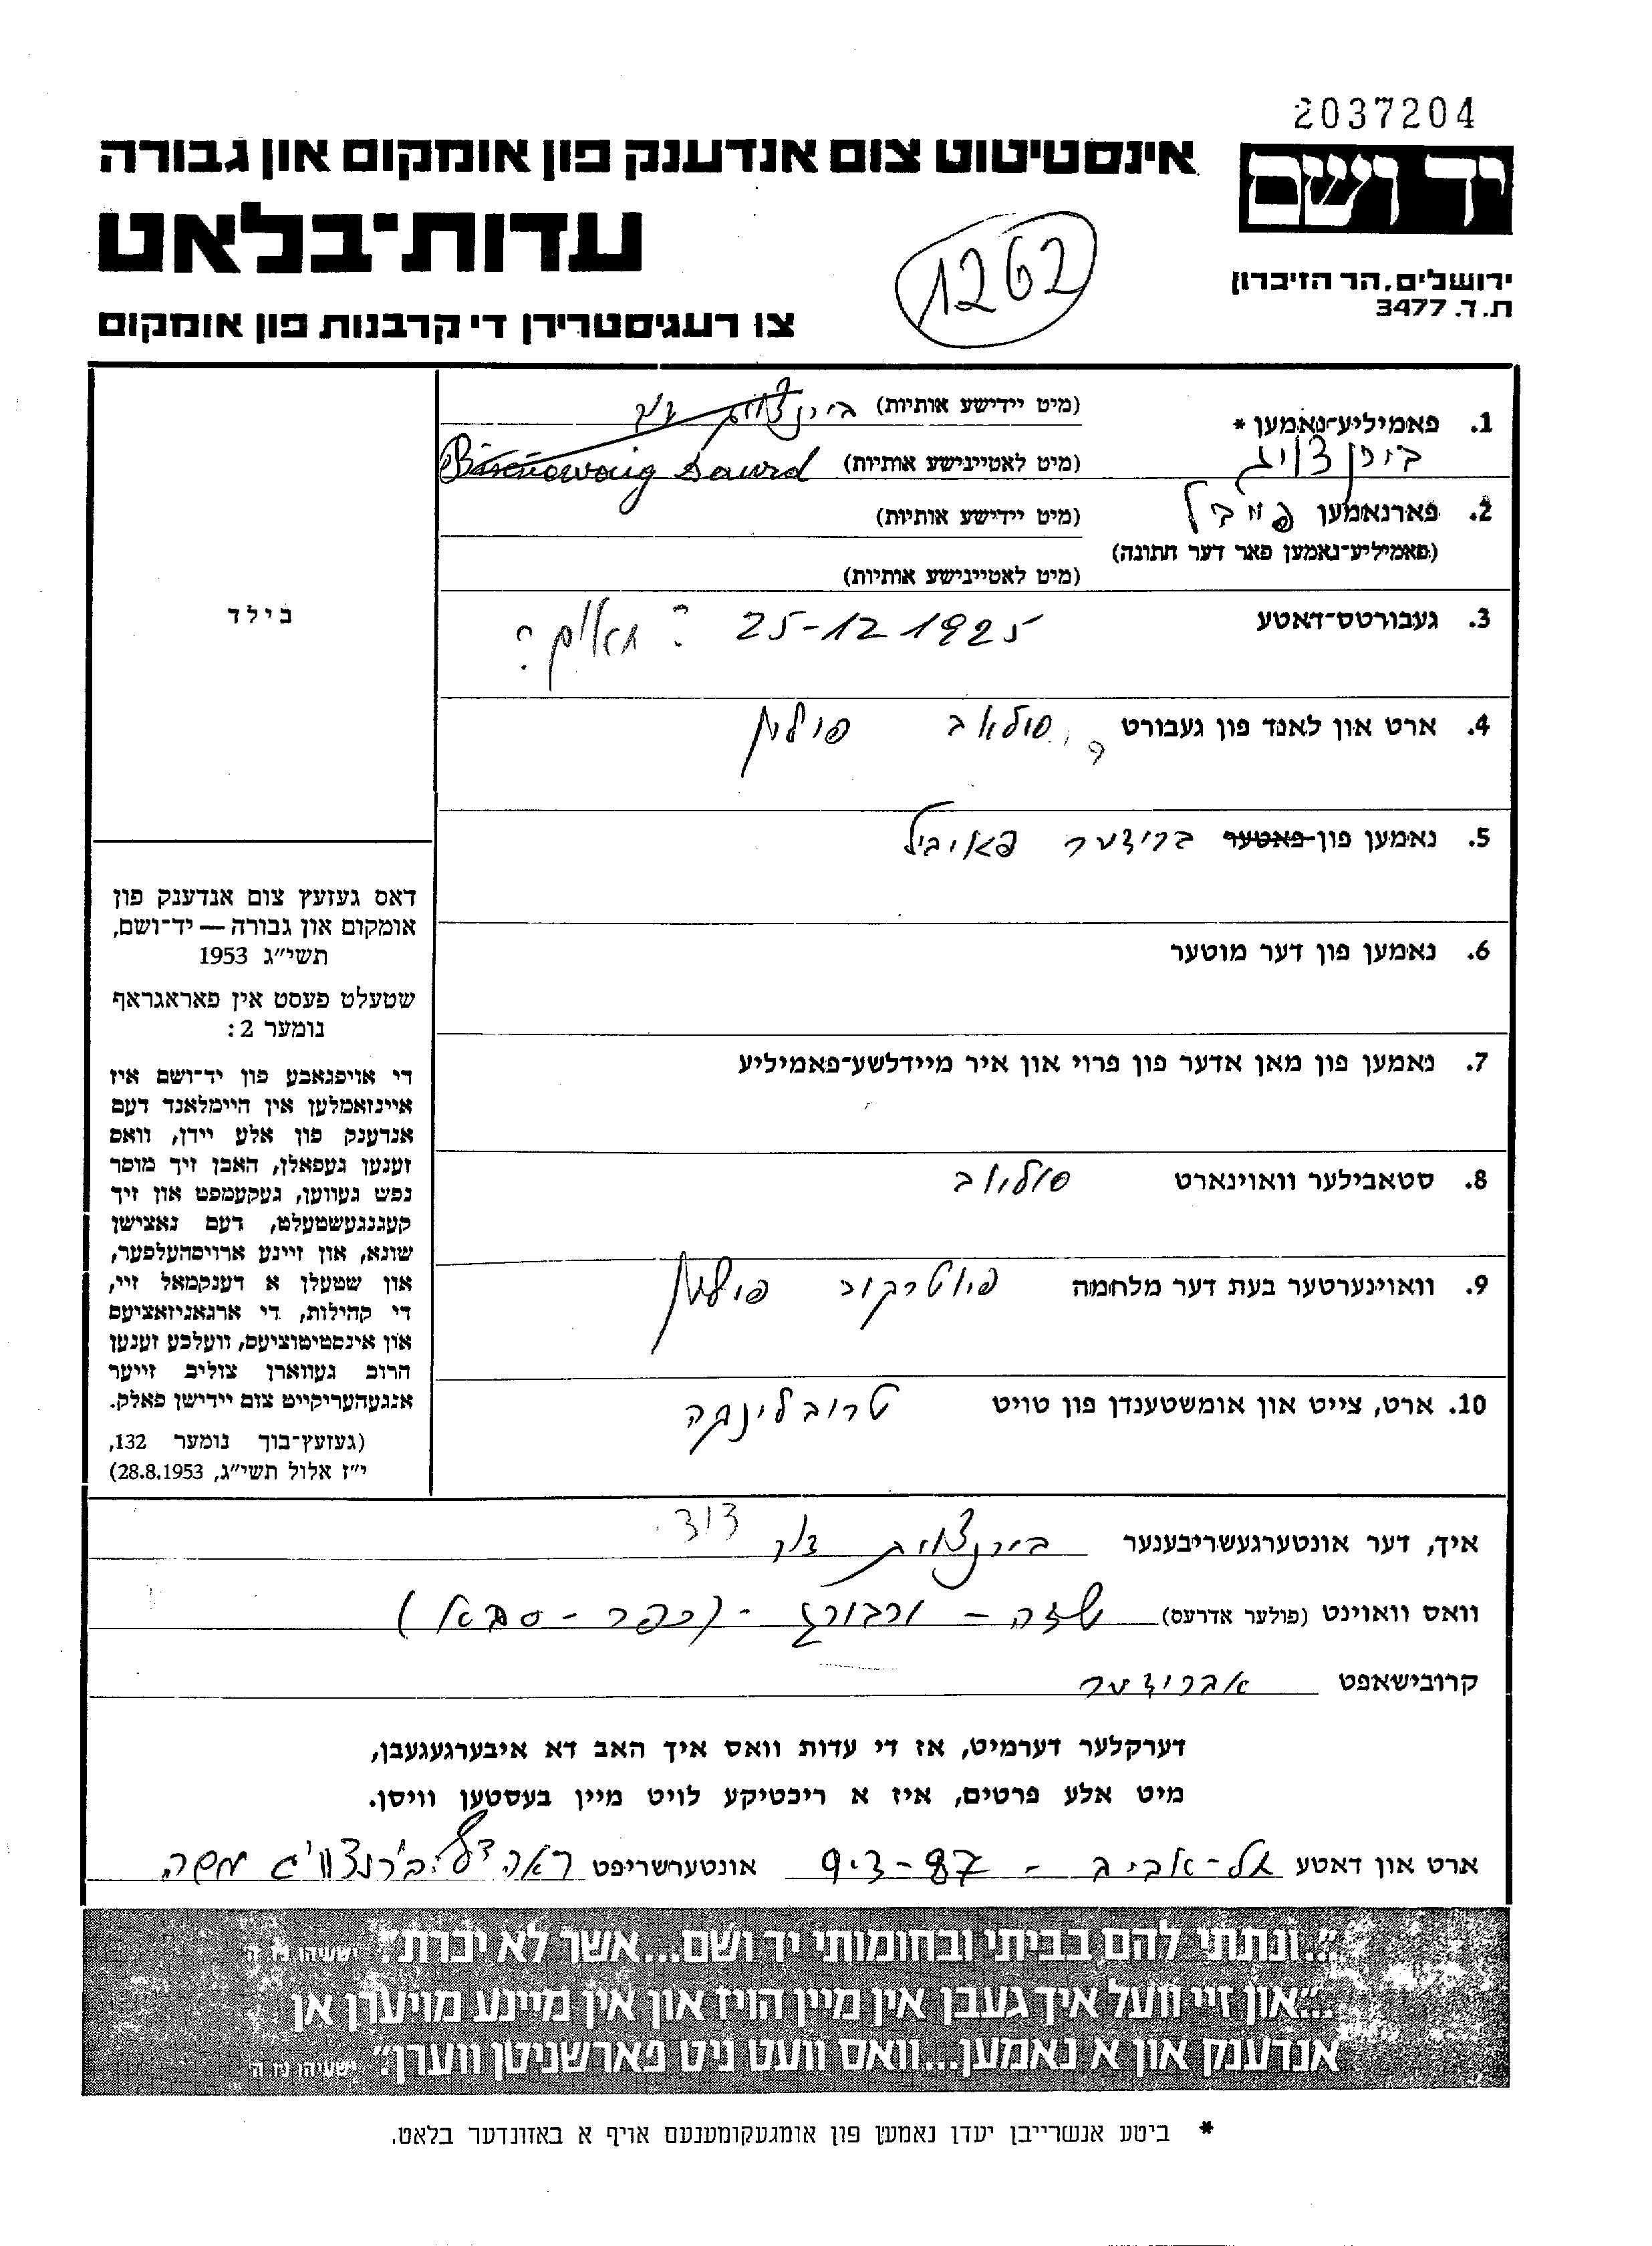 2037204
יד ושם
אינסטיטוט צום אנדענק פון אומקום און גבורה
עדות־בלאט
1262
ירושלים, הר הזיכרון
ת. ד. 3477
צו רעגיסטרירן די קרבנות פון אומקום
1. פאמיליע־נאמען * (מיט יידישע אותיות)
(מיט לאטייןישע אותיות) Dawid
2. פארנאמען (מיט יידישע אותיות)
(פאמיליע־נאמען פאר דער חתונה)
(מיט לאטייןישע אותיות)
בילד
3. געבורטס־דאטע 25-12 1925 ?
4. ארט און לאנד פון געבורט פולין
5. נאמען פון פאטער ברודער פאויביל
6. נאמען פון דער מוטער
7. נאמען פון מאן אדער פון פרוי און איר מיידלשע־פאמיליע
8. סטאבילער וואוינארט סוליוב
9. וואוינערטער בעת דער מלחמה פיוטרקוב פולין
10. ארט, צייט און אומשטענדן פון טויט טרובלינקה
דאס געזעץ צום אנדענק פון
אומקום און גבורה — יד־ושם,
תשי״ג 1953
שטעלט פעסט אין פאראגראף
נומער 2:
די אויפגאבע פון יד־ושם איז
איינזאמלען אין היימלאנד דעם
אנדענק פון אלע יידן, וואס
זענען געפאלן, האבן זיך מוסר
נפש געווען, געקעמפט און זיך
קעגנגעשטעלט, דעם נאצישן
שונא, און זיינע ארויסהעלפער,
און שטעלן א דענקמאל זיי,
די קהילות, די ארגאניזאציעס
און אינסטיטוציעס, וועלכע זענען
הרוב געווארן צוליב זייער
אנגעהעריקייט צום יידישן פאלק.
(געזעץ־בוך נומער 132,
י״ז אלול תשי״ג, 28.8.1953)
איך, דער אונטערגעשריבענער דוד
וואס וואוינט (פולער אדרעס) שדה - ורבורג - (כפר - סבא)
קרובישאפט א ברודער
דערקלער דערמיט, אז די עדות וואס איך האב דא איבערגעגעבן,
מיט אלע פרטים, איז א ריכטיקע לויט מיין בעסטען וויסן.
ארט און דאטע תל-אביב - 9.3-87 אונטערשריפט בירנצווייג משה
"...ונתתי להם בביתי ובחומותי יד ושם...אשר לא יכרת" ישעיהו נו, ה
"...און זיי וועל איך געבן אין מיין הויז און אין מיינע מויערן אן
אנדענק און א נאמען...וואס וועט ניט פארשניטן ווערן" ישעיהו נו, ה
* ביטע אנשרייבן יעדן נאמען פון אומגעקומענעם אויף א באזונדער בלאט.